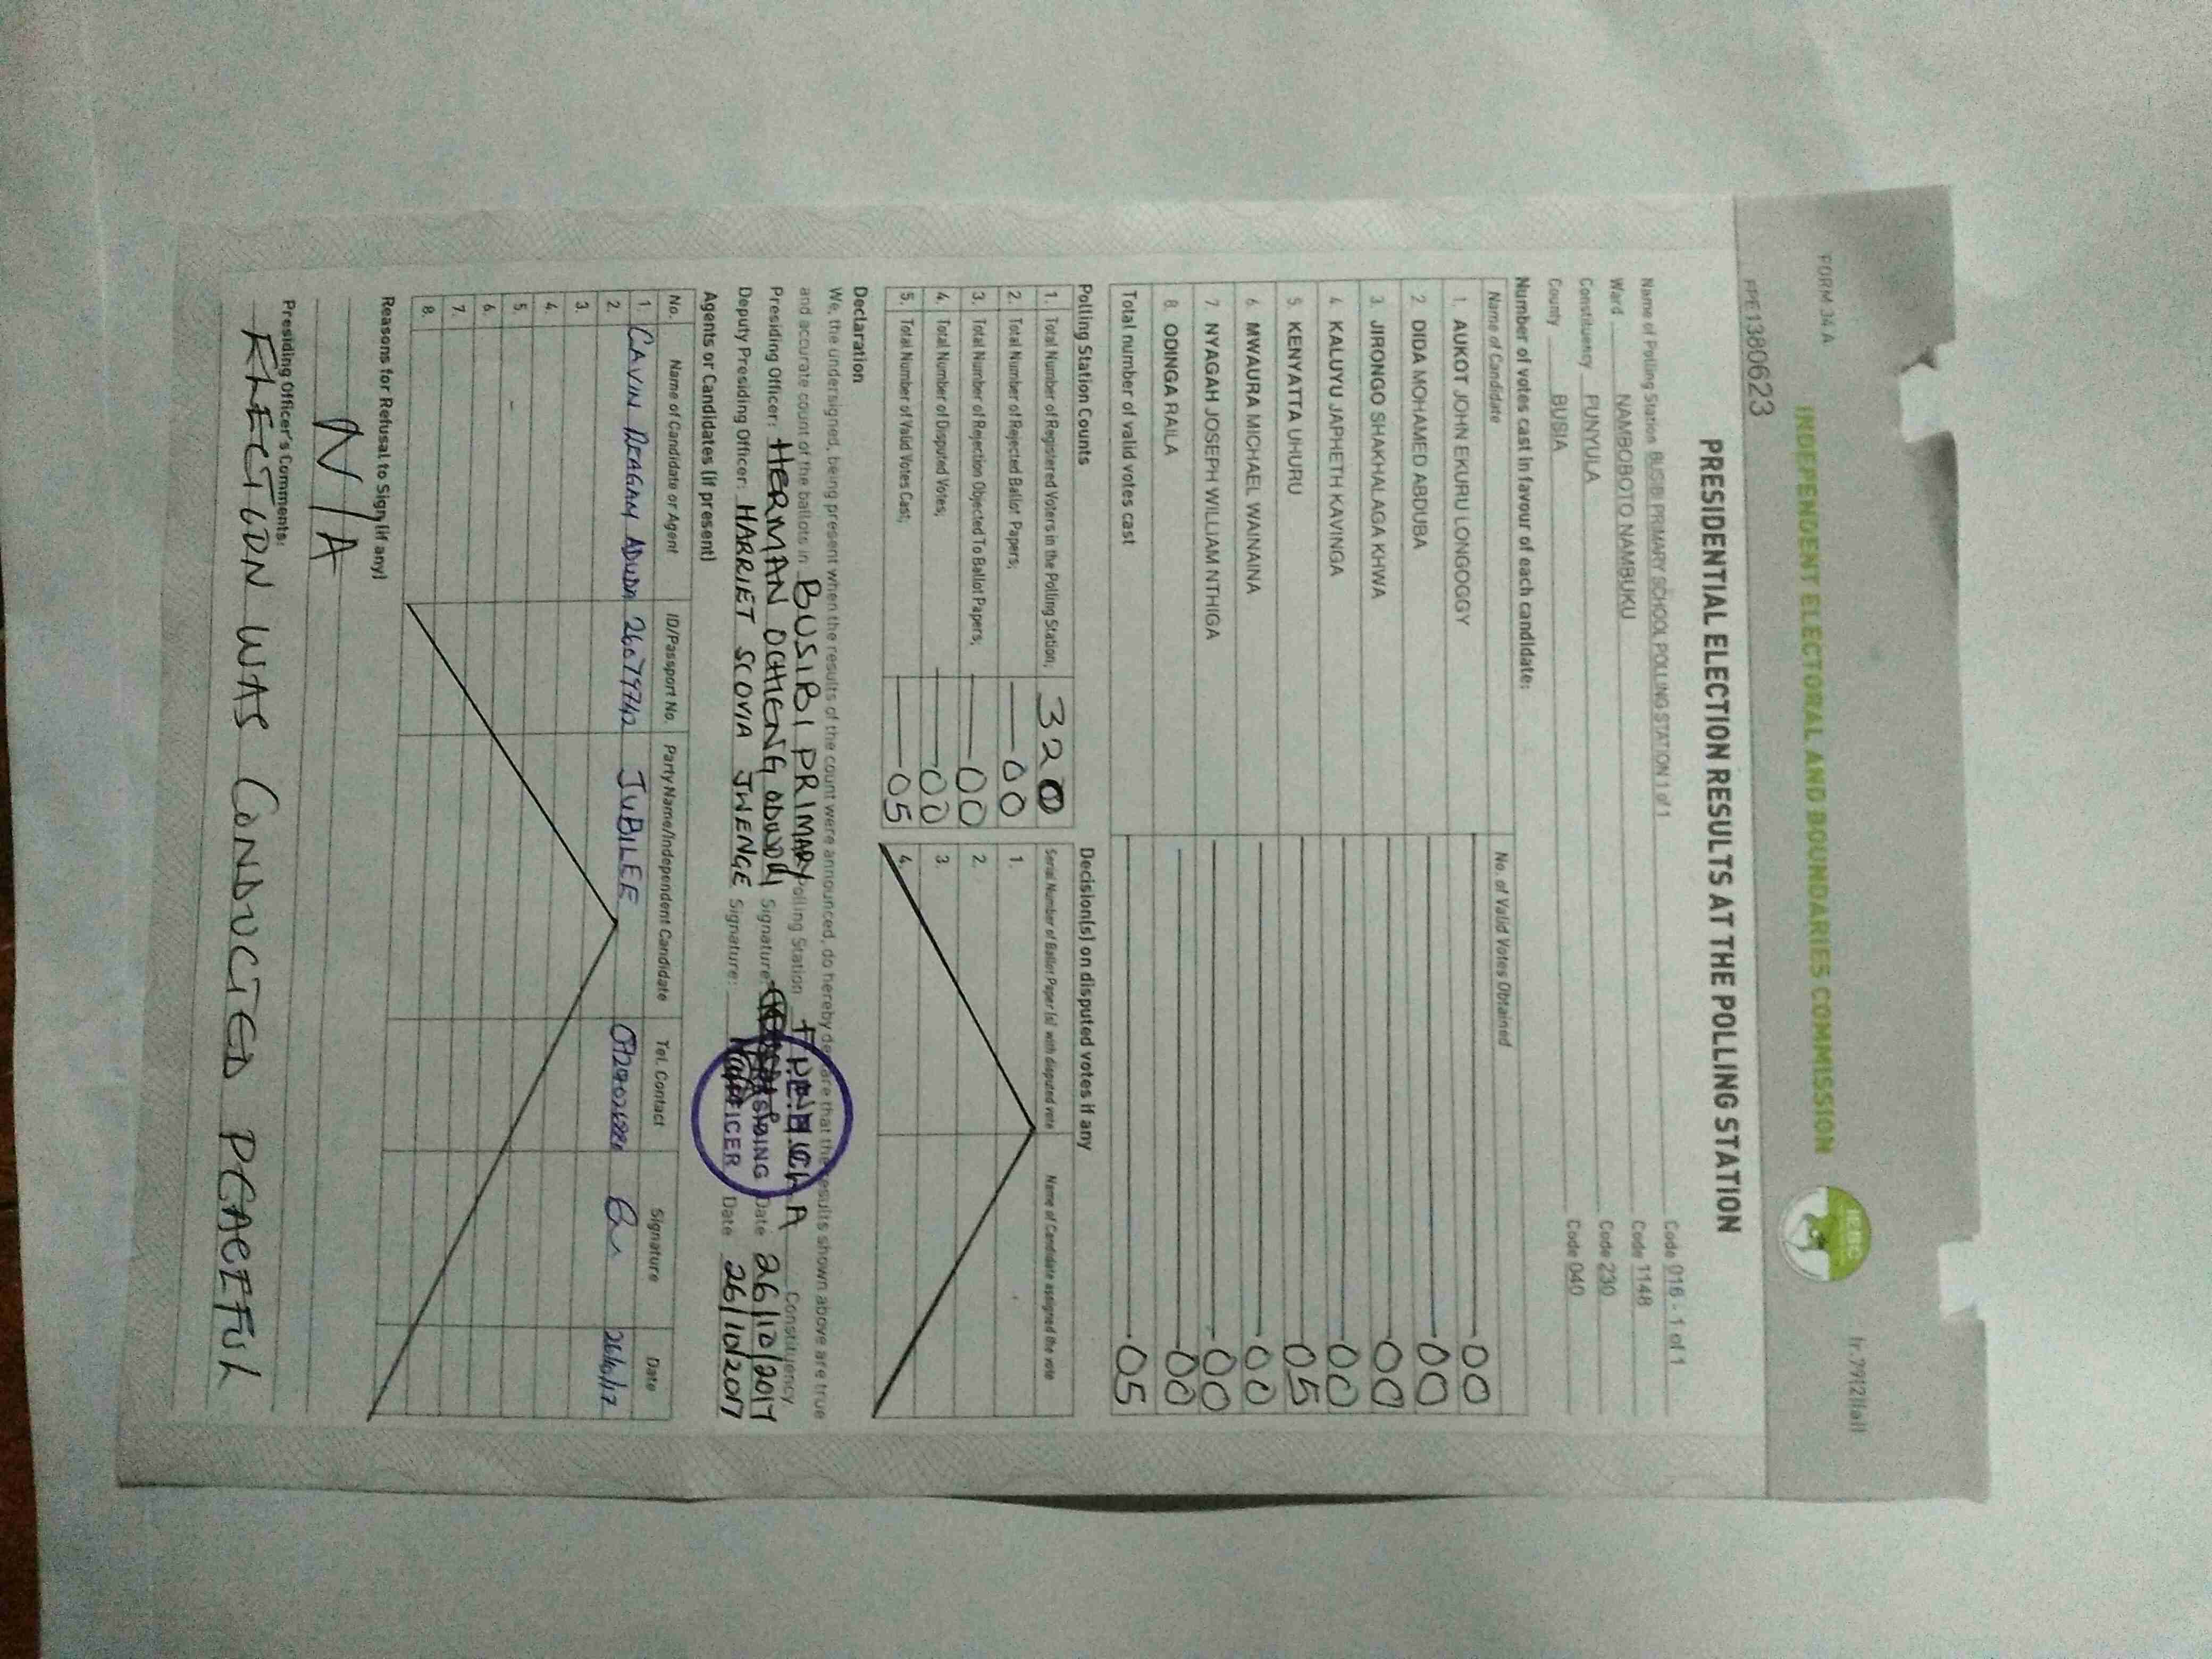 FORM 34 A
r. 79(2)(a)
INDEPENDENT ELECTORAL AND BOUNDARIES COMMISSION
IEBC
PPE1380623
PRESIDENTIAL ELECTION RESULTS AT THE POLLING STATION
Name of Polling Station BUSIBI PRIMARY SCHOOL POLLING STATION 1 of 1 Code 016 - 1 of 1
Ward NAMBOBOTO NAMBUKU Code 1148
Constituency FUNYULA Code 230
County BUSIA Code 040
Number of votes cast in favour of each candidate:
Name of Candidate No. of Valid Votes Obtained
1. AUKOT JOHN EKURU LONGOGGY 00
2. DIDA MOHAMED ABDUBA 00
3. JIRONGO SHAKHALAGA KHWA 00
4. KALUYU JAPHETH KAVINGA 00
5. KENYATTA UHURU 05
6. MWAURA MICHAEL WAINAINA 00
7. NYAGAH JOSEPH WILLIAM NTHIGA 00
8. ODINGA RAILA 00
Total number of valid votes cast 05
Polling Station Counts
1. Total Number of Registered Voters in the Polling Station; 320
2. Total Number of Rejected Ballot Papers; 00
3. Total Number of Rejection Objected To Ballot Papers; 00
4. Total Number of Disputed Votes; 00
5. Total Number of Valid Votes Cast; 05
Decision(s) on disputed votes if any
Serial Number of Ballot Paper (s) with disputed vote Name of Candidate assigned the vote
1.
2.
3.
4.
Declaration
We, the undersigned, being present when the results of the count were announced, do hereby declare that the results shown above are true
and accurate count of the ballots in BUSIBI PRIMARY Polling Station Constituency
Presiding Officer: HERMAN OCHIENG ODUORI Signature: Date 26/10/2017
Deputy Presiding Officer: HARRIET SCOVIA JWENGE Signature: Date 26/10/2017
PRESIDING OFFICER
Agents or Candidates (if present)
No. Name of Candidate or Agent ID/Passport No. Party Name/Independent Candidate Tel. Contact Signature Date
1. CAVIN REAGAN 26079742 JUBILEE 26/10/17
2.
3.
4.
5.
6.
7.
8.
Reasons for Refusal to Sign (if any)
N/A
Presiding Officer's Comments:
ELECTION WAS CONDUCTED PEACEFUL